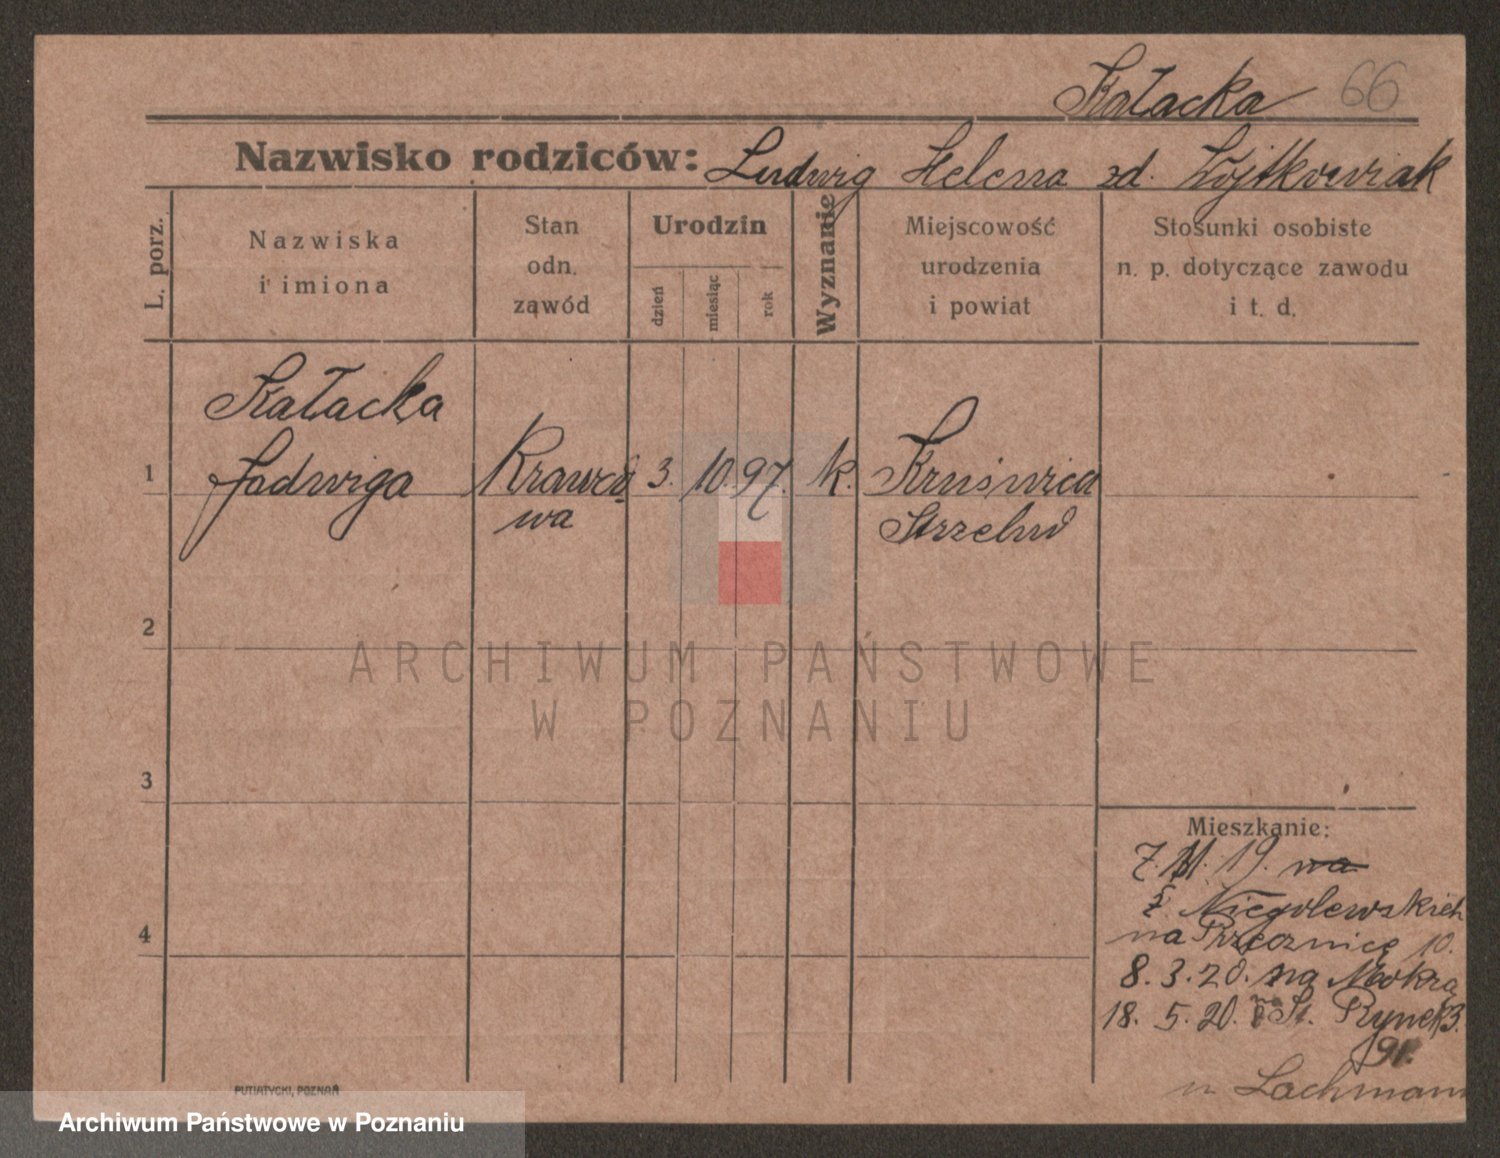 Kałacka 66
Nazwisko rodziców: Ludwig Helena zd. Wojtkowiak
L. porz.
Nazwiska
i imiona
Stan
odn.
zawód
Urodzin
dzień
miesiąc
rok
Wyznanie
Miejscowość
urodzenia
i powiat
Stosunki osobiste
n. p. dotyczące zawodu
i t. d.
Kałacka
1 Jadwiga Krawco 3. 10. 97. k. Kruświca
wa Strzelno
2
ARCHIWUM PAŃSTWOWE
W POZNANIU
3
Mieszkanie:
7. 11. 19. na
z. Niegolewskich
4
na Przecznicę 10.
8. 3. 20. na Mokrą
18. 5. 20. na St. Rynek 3.
91.
Lachmann
PUTIATYCKI, POZNAŃ
Archiwum Państwowe w Poznaniu